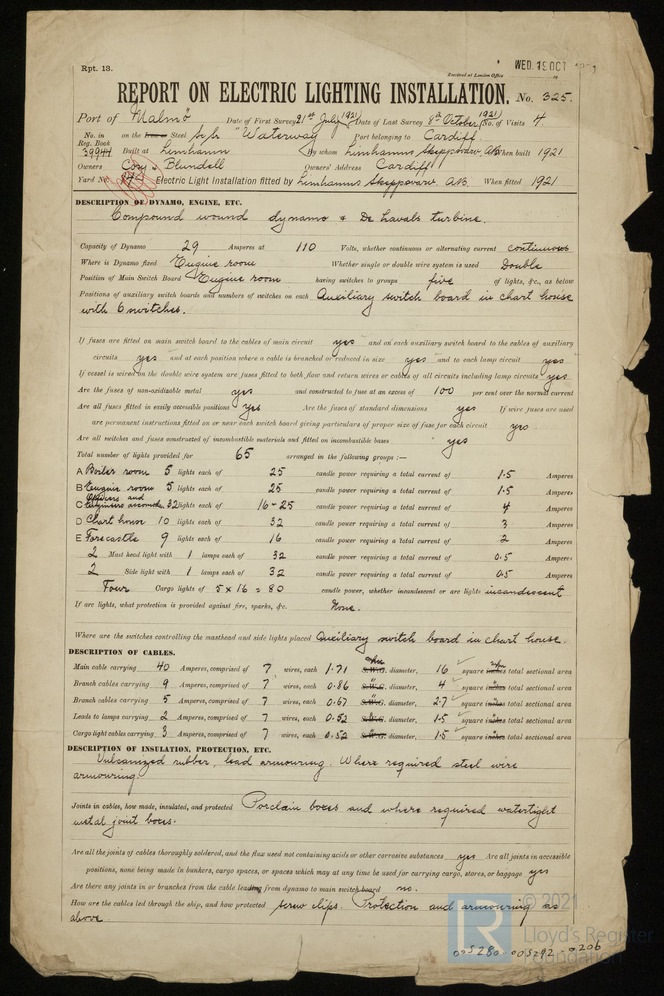 Rpt. 13.
Received at London Office
WED. 19 OCT 1921
REPORT ON ELECTRIC LIGHTING INSTALLATION. No. 325.
Port of Malmö Date of First Survey 21st July 1921 Date of Last Survey 8th October 1921 No. of Visits 4.
No. in Reg. Book on the Iron or Steel s/s "Waterway" Port belonging to Cardiff
39941 Built at Limhamn By whom Limhamns Skeppsvarv A.B. When built 1921
Owners Cory & Blundell Owners' Address Cardiff
Yard No. Electric Light Installation fitted by Limhamns Skeppsvarv A.B. When fitted 1921
DESCRIPTION OF DYNAMO, ENGINE, ETC.
Compound wound dynamo & De Lavals turbine.
Capacity of Dynamo 29 Amperes at 110 Volts, whether continuous or alternating current continuous
Where is Dynamo fixed Engine room Whether single or double wire system is used Double
Position of Main Switch Board Engine room having switches to groups five of lights, &c., as below
Positions of auxiliary switch boards and numbers of switches on each Auxiliary switch board in chart house
with 6 switches.
If fuses are fitted on main switch board to the cables of main circuit yes and on each auxiliary switch board to the cables of auxiliary
circuits yes and at each position where a cable is branched or reduced in size yes and to each lamp circuit yes
If vessel is wired on the double wire system are fuses fitted to both flow and return wires or cables of all circuits including lamp circuits yes
Are the fuses of non-oxidizable metal yes and constructed to fuse at an excess of 100 per cent over the normal current
Are all fuses fitted in easily accessible positions yes Are the fuses of standard dimensions yes If wire fuses are used
are permanent instructions fitted on or near each switch board giving particulars of proper size of fuse for each circuit yes.
Are all switches and fuses constructed of incombustible materials and fitted on incombustible bases yes
Total number of lights provided for 65 arranged in the following groups :—
A Boiler room 5 lights each of 25 candle power requiring a total current of 1.5 Amperes
B Engine room 5 lights each of 25 candle power requiring a total current of 1.5 Amperes
C Officers and Engineers accomda. 32 lights each of 16-25 candle power requiring a total current of 4 Amperes
D Chart house 10 lights each of 32 candle power requiring a total current of 3 Amperes
E Forecastle 9 lights each of 16 candle power requiring a total current of 2 Amperes
2 Mast head light with 1 lamps each of 32 candle power requiring a total current of 0.5 Amperes
2 Side light with 1 lamps each of 32 candle power requiring a total current of 0.5 Amperes
Four Cargo lights of 5 x 16 = 80 candle power, whether incandescent or arc lights incandescent
If arc lights, what protection is provided against fire, sparks, &c. None.
Where are the switches controlling the masthead and side lights placed Auxiliary switch board in chart house.
DESCRIPTION OF CABLES.
Main cable carrying 40 Amperes, comprised of 7 wires, each 1.71 S.W.G. m/m diameter, 16 square inches m/m total sectional area
Branch cables carrying 9 Amperes, comprised of 7 wires, each 0.86 S.W.G. diameter, 4 square inches total sectional area
Branch cables carrying 5 Amperes, comprised of 7 wires, each 0.67 S.W.G. diameter, 2.7 square inches total sectional area
Leads to lamps carrying 2 Amperes, comprised of 7 wires, each 0.52 S.W.G. diameter, 1.5 square inches total sectional area
Cargo light cables carrying 3 Amperes, comprised of 7 wires, each 0.52 S.W.G. diameter, 1.5 square inches total sectional area
DESCRIPTION OF INSULATION, PROTECTION, ETC.
Vulcanized rubber, lead armouring. Where required steel wire
armouring.
Joints in cables, how made, insulated, and protected Porclain boxes and where required watertight
metal joint boxes.
Are all the joints of cables thoroughly soldered, and the flux used not containing acids or other corrosive substances yes Are all joints in accessible
positions, none being made in bunkers, cargo spaces, or spaces which may at any time be used for carrying cargo, stores, or baggage yes
Are there any joints in or branches from the cable leading from dynamo to main switch board no.
How are the cables led through the ship, and how protected screw clips. Protection and armouring as
above.
© 2021
Lloyd's Register
Foundation
005280-005292-0206